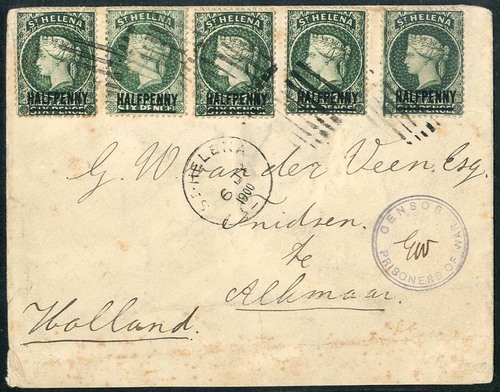 ST HELENA
HALFPENNY
SIXPENCE
ST HELENA
HALFPENNY
SIXPENCE
ST HELENA
HALFPENNY
SIXPENCE
ST HELENA
HALFPENNY
SIXPENCE
ST HELENA
HALFPENNY
SIXPENCE
G. W. van der Veen. Esq.
ST. HELENA
6
1900
Snidsen.
te
Alkmaar.
Holland.
CENSOR
PRISONERS OF WAR